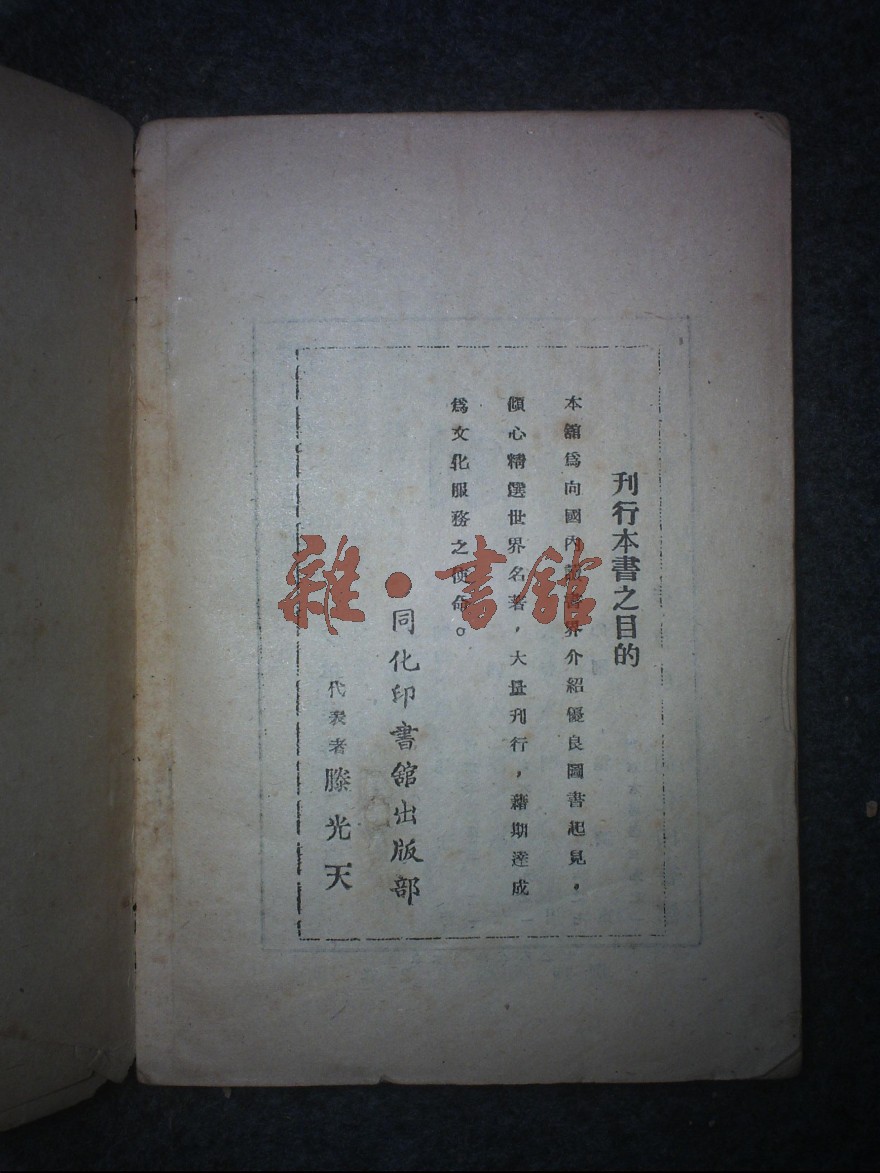 刊行本書之目的
本館爲向國內讀書界介紹優良圖書起見。
傾心精選世界名著，大量刊行，藉期達成
爲文化服務之使命。
同化印書館出版部
代表者 滕光天
雜·書館